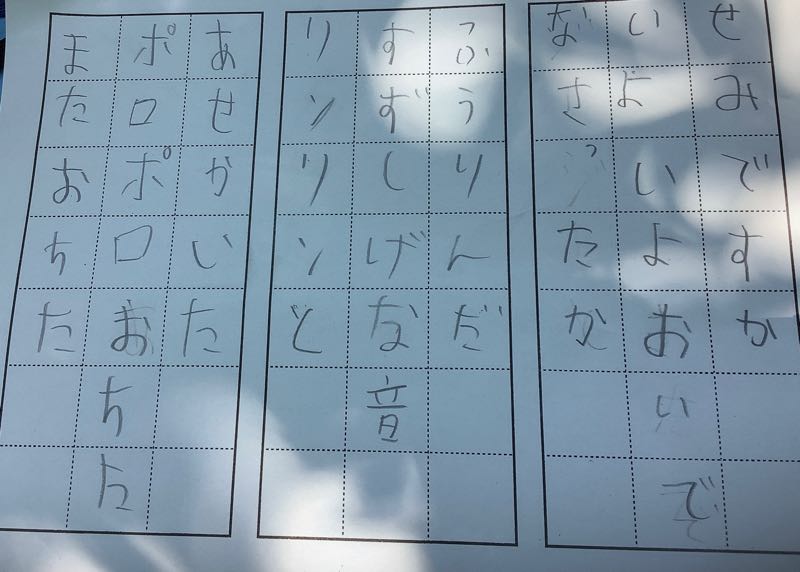 せみですか
いよいよおいで
なさたか
ふうりんだ
すずしげな音
リンリンと
あせかいた
ポロポロおちた
またおちた